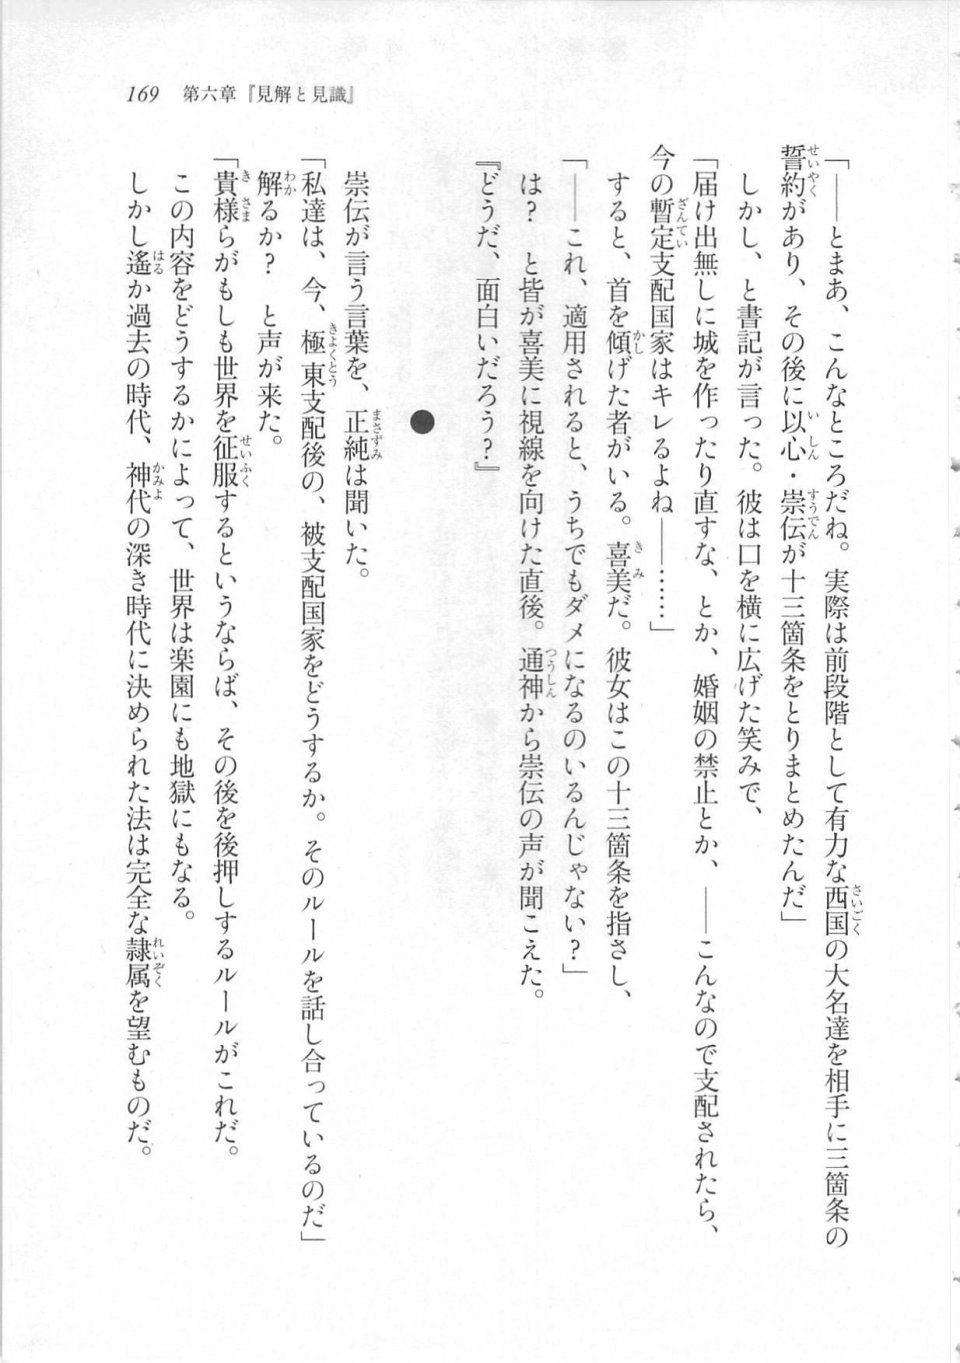 169　第六章『見解と見識』
「――とまあ、こんなところだね。実際は前段階として有力な西国の大名達を相手に三箇条の
誓約があり、その後に以心・崇伝が十三箇条をとりまとめたんだ」
しかし、と書記が言った。彼は口を横に広げた笑みで、
「届け出無しに城を作ったり直すな、とか、婚姻の禁止とか、――こんなので支配されたら、
今の暫定支配国家はキレるよね――……」
すると、首を傾げた者がいる。喜美だ。彼女はこの十三箇条を指さし、
「――これ、適用されると、うちでもダメになるのいるんじゃない？」
は？　と皆が喜美に視線を向けた直後。通神から崇伝の声が聞こえた。
『どうだ、面白いだろう？』
●
崇伝が言う言葉を、正純は聞いた。
「私達は、今、極東支配後の、被支配国家をどうするか。そのルールを話し合っているのだ」
解るか？　と声が来た。
「貴様らがもしも世界を征服するというならば、その後を後押しするルールがこれだ。
この内容をどうするかによって、世界は楽園にも地獄にもなる。
しかし遙か過去の時代、神代の深き時代に決められた法は完全な隷属を望むものだ。